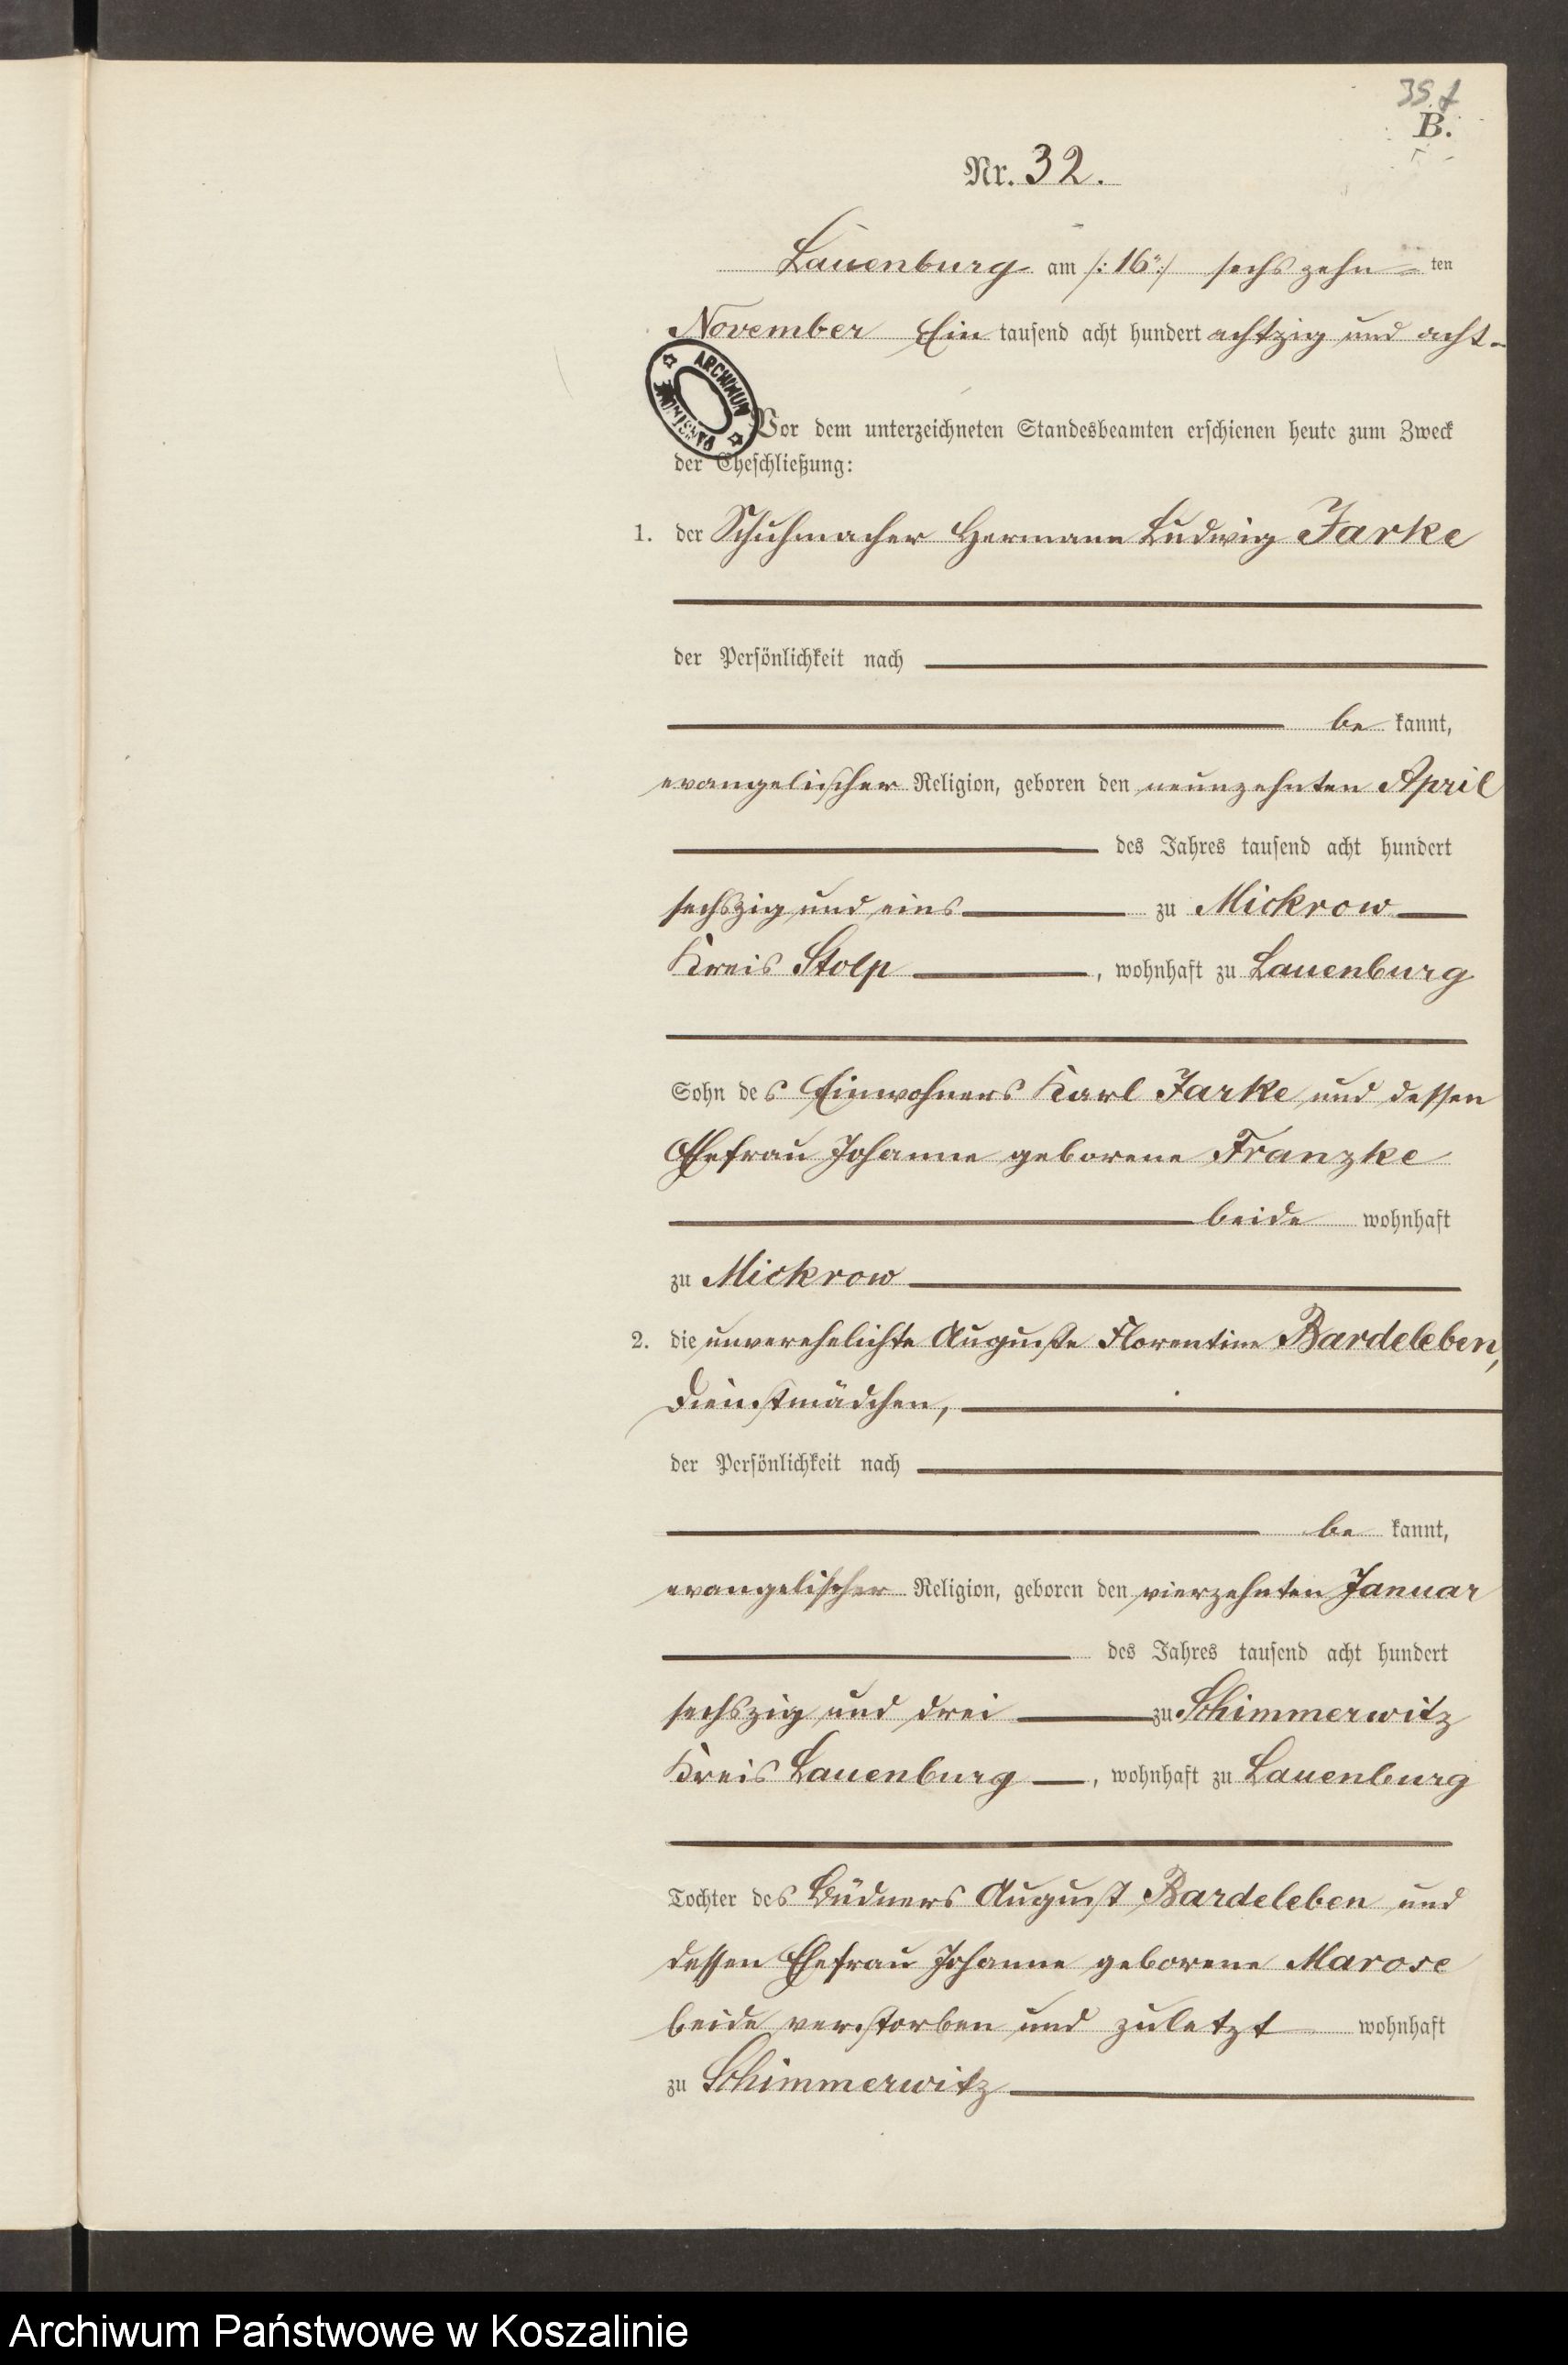 35.
B.
Nr. 32.
Lauenburg am /:16:/ sechszehn ten
November Ein tausend acht hundert achtzig und acht
ARCHIWUM PAŃSTWOWE
Vor dem unterzeichneten Standesbeamten erschienen heute zum Zweck
der Eheschließung:
1. der Schuhmacher Hermann Ludwig Jarke
der Persönlichkeit nach
be kannt,
evangelischer Religion, geboren den neunzehnten April
des Jahres tausend acht hundert
sechszig und eins zu Mickrow
Kreis Stolp, wohnhaft zu Lauenburg
Sohn des Einwohners Karl Jarke und dessen
Ehefrau Johanne geborene Franzke
beide wohnhaft
zu Mickrow
2. die unverehelichte Auguste Florentine Bardeleben,
Dienstmädchen,
der Persönlichkeit nach
be kannt,
evangelischer Religion, geboren den vierzehnten Januar
des Jahres tausend acht hundert
sechszig und drei zu Schimmerwitz
Kreis Lauenburg, wohnhaft zu Lauenburg
Tochter des Büdners August Bardeleben und
dessen Ehefrau Johanne geborene Marose
beide verstorben und zuletzt wohnhaft
zu Schimmerwitz
Archiwum Państwowe w Koszalinie